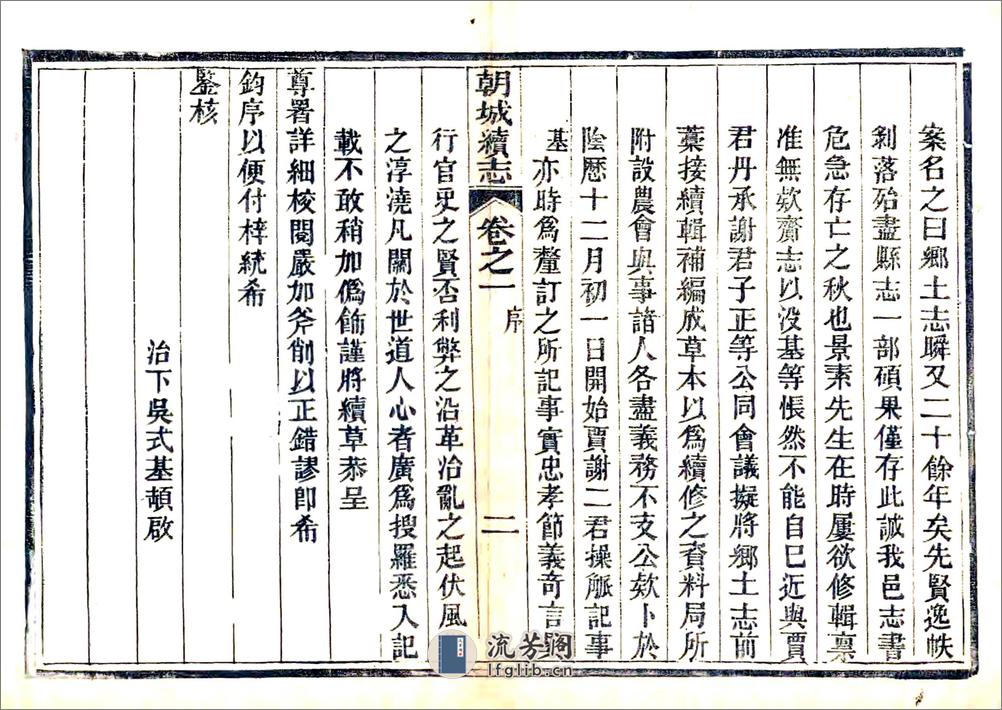 案名之曰鄉土志瞬又二十餘年矣先賢逸帙
剝落殆盡縣志一部碩果僅存此誠我邑志書
危急存亡之秋也景素先生在時屢欲修輯禀
准無欵齎志以没基等悵然不能自已近與賈
君丹承謝君子正等公同會議擬將鄉土志前
藁接續輯補編成草本以為續修之資料局所
附設農會與事諸人各盡義務不支公欵卜於
陰歷十二月初一日開始賈謝二君操觚記事
基亦時為釐訂之所記事實忠孝節義奇言
朝城續志 卷之一 序 二
行官吏之賢否利弊之沿革治亂之起伏風
之淳澆凡關於世道人心者廣為搜羅悉入記
載不敢稍加偽飾謹將續草恭呈
尊署詳細校閱嚴加斧削以正錯謬卽希
鈞序以便付梓統希
鑒核
治下吳式基頓啟
流芳阁
lfglib.cn